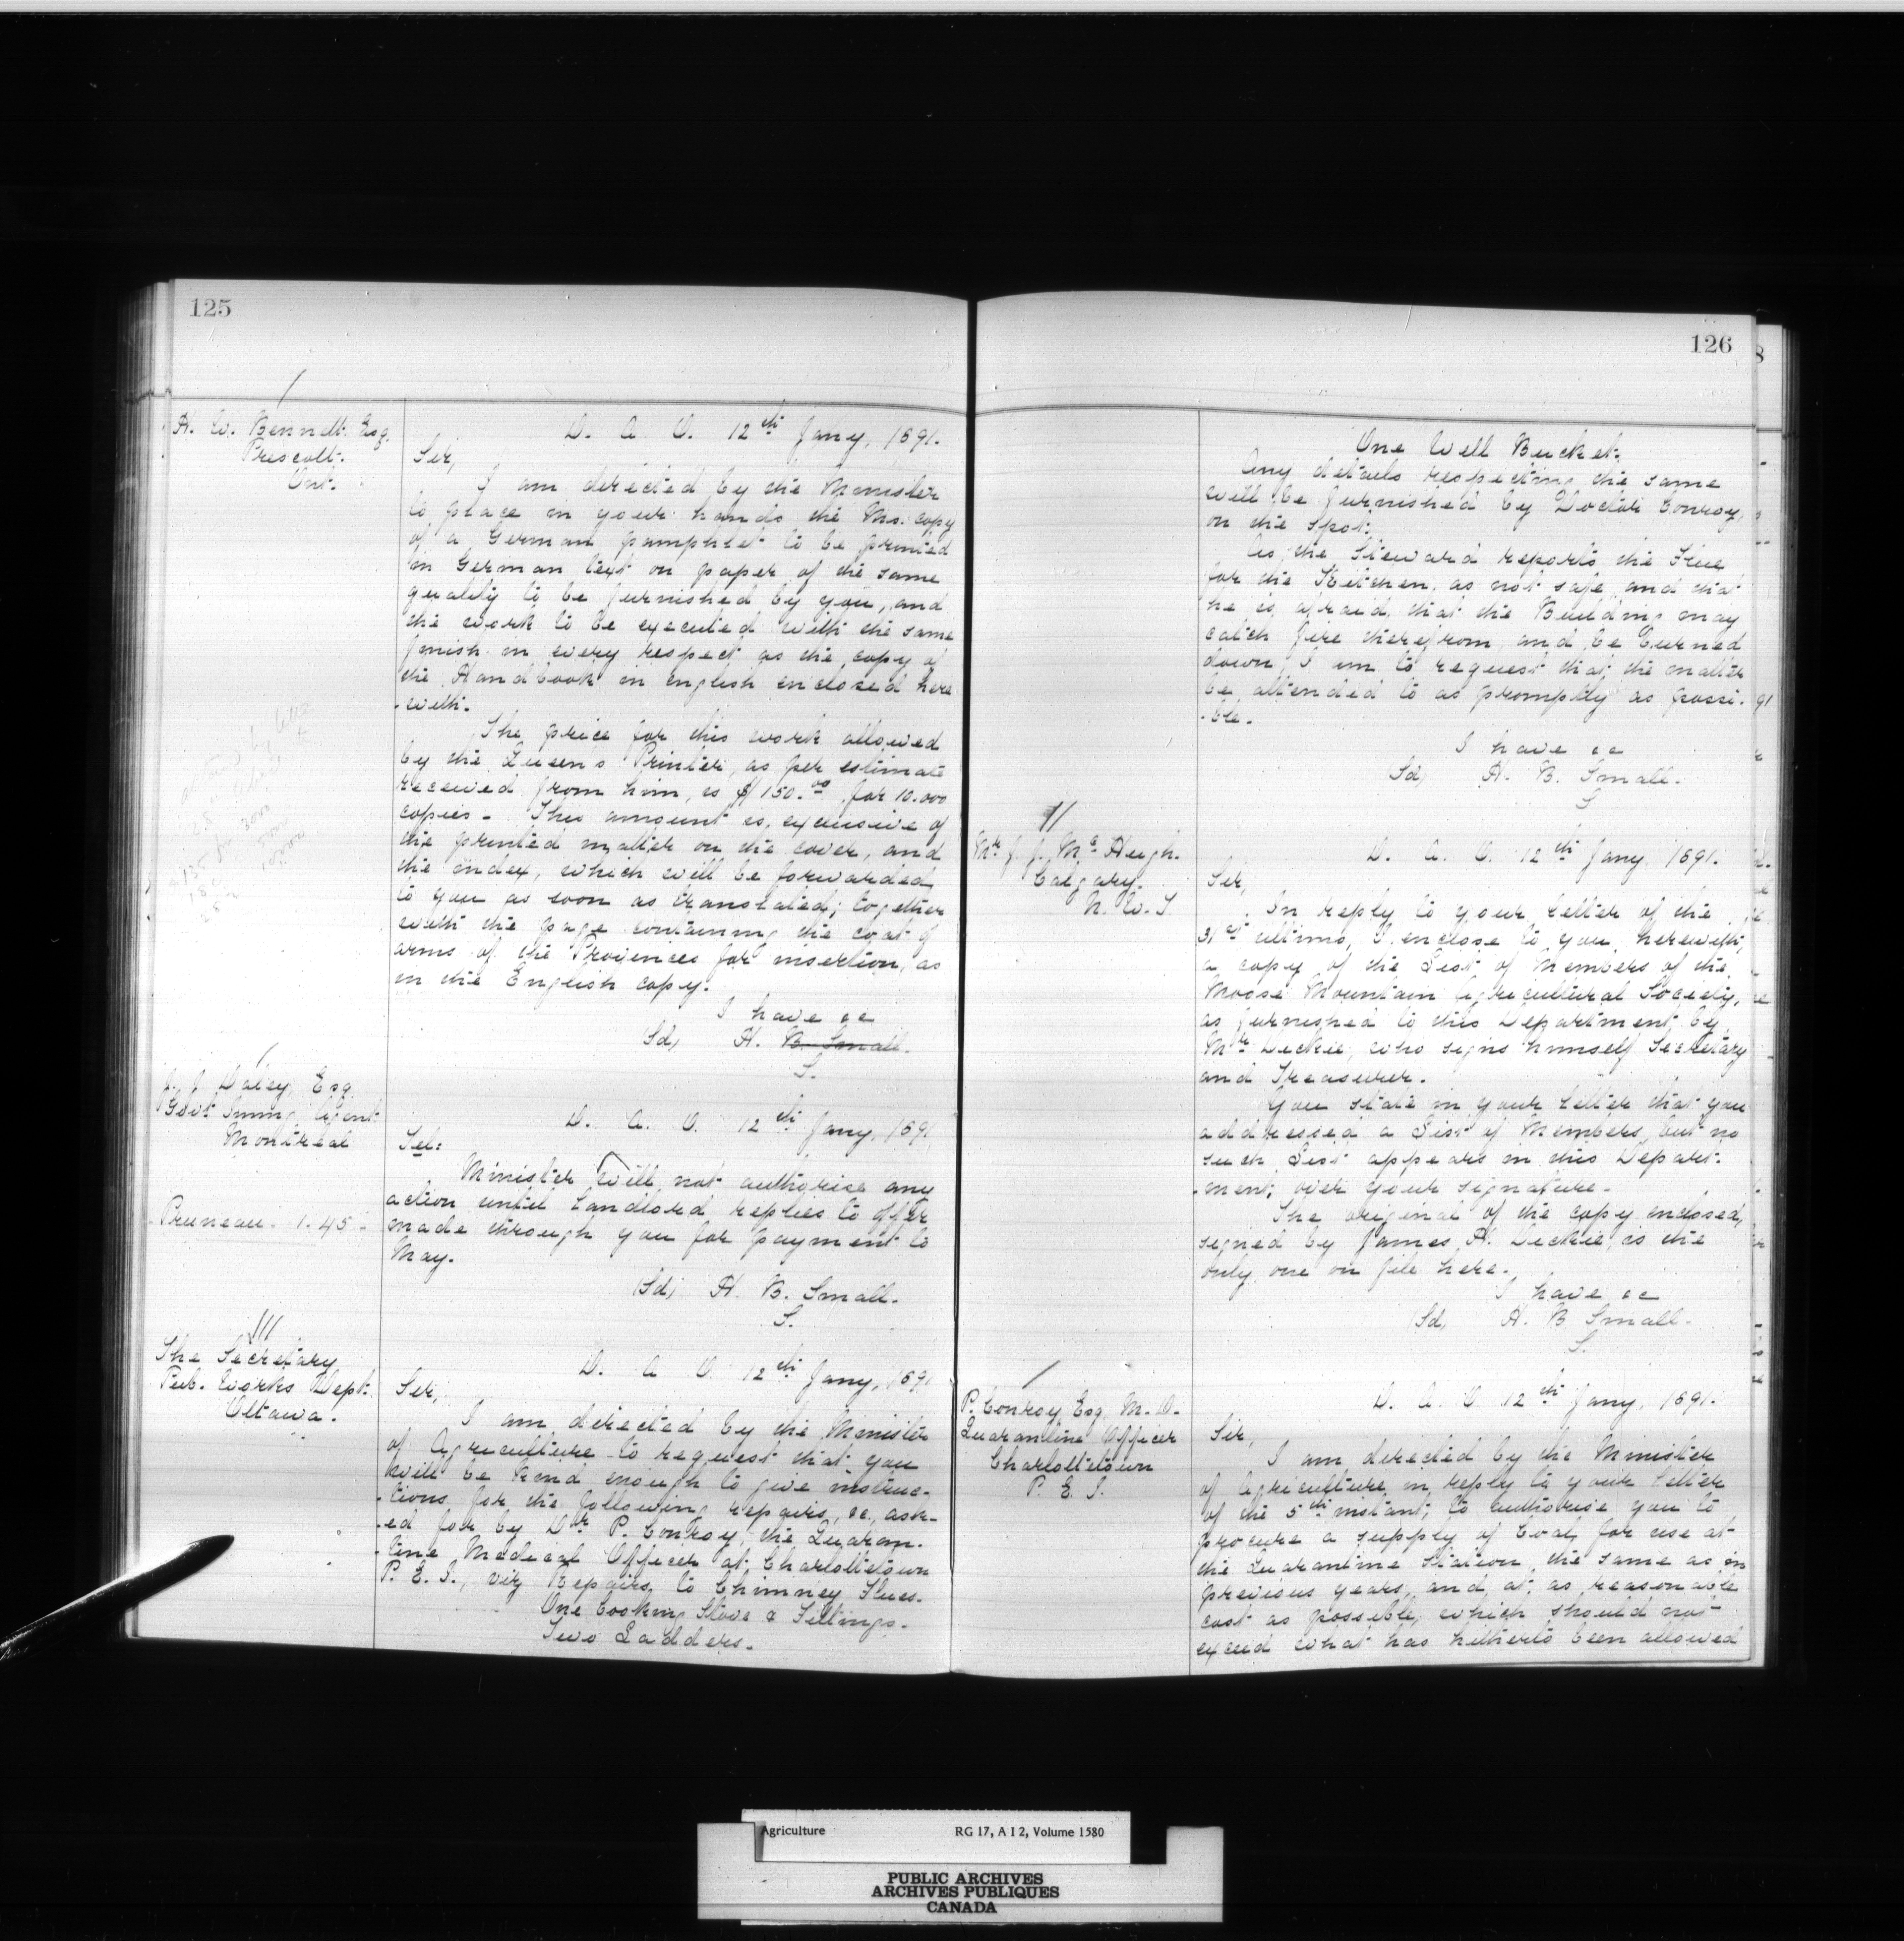 125
H. W. Bennett. Esq.
Prescott.
Ont.
D. A. O. 12th Jany, 1891.
Sir,
I am directed by the Minister
to place in your hands the Ms. copy
of a German pamphlet to be printed
in German text on paper of the same
quality to be furnished by you, and
the work to be executed with the same
finish in every respect as the copy of
the Handbook in english enclosed here
-with.
The price for this work allowed
by the Queen's Printer, as per estimate
received from him, is $150.00 for 10.000
copies - This amount is, exclusive of
the printed matter on the cover, and
the index, which will be forwarded
to you as soon as translated; together
with the page containing the coat of
arms of the Provinces for insertion, as
in the English copy.
I have &c
(Sd) H. B. Small.
S.
J. J. Daley, Esq.
Govt Immig Agent
Montreal
Pruneau - 1.45 -
D. A. O. 12th Jany, 1891
Tel:
Minister will not authorise any
action until Landlord replies to offer
made through you for payment to
May.
(Sd) H. B. Small.
S.
The Secretary
Pub. Works Dept.
Ottawa.
D. A. O. 12th Jany, 1891
Sir,
I am directed by the Minister
of Agriculture to request that you
will be kind enough to give instruc-
-tions for the following repairs, &c., ask-
-ed for by Dr P. Conroy, the Quaran-
-tine Medical Officer at Charlottetown
P. E. I., viz Repairs, to Chimney Flues.
One Cooking Stove & Fittings.
Two Ladders.
126
One Well Bucket.
Any details respecting the same
will be furnished by Doctor Conroy,
on the spot.
As the Steward reports the Flue
for the Kitchen, as not safe, and that
he is afraid, that the Building may
catch fire therefrom, and be burned
down, I am to request that the matter
be attended to as promptly as possi-
-ble.
I have &c
(Sd) H. B. Small.
S
Mr J. J. Mc Hugh.
Calgary.
N. W. T.
D. A. O. 12th Jany 1891.
Sir,
In reply to your letter of the
31st ultimo, I enclose to you herewith,
a copy of the List of Members of the
Moose Mountain Agricultural Society,
as furnished to this Department by
Mr Dickie, who signs himself Secretary
and Treasurer.
You state in your letter that you
addressed a List of Members, but no
such List appears in this Depart-
-ment; over your signature.
The original of the copy enclosed,
signed by James H. Dickie, is the
only one on file here.
I have &c
(Sd) H. B Small.
S.
P. Conroy Esq M. D.
Quarantine Officer
Charlottetown
P. E. I.
D. A. O 12th Jany, 1891.
Sir,
I am directed by the Minister
of Agriculture in reply to your letter
of the 5th instant; to authorise you to
procure a supply of Coal for use at
the Quarantine Station, the same as in
previous years, and at as reasonable
cost as possible, which should not
exceed what has hitherto been allowed
Agriculture RG 17, A I 2, Volume 1580
PUBLIC ARCHIVES
ARCHIVES PUBLIQUES
CANADA